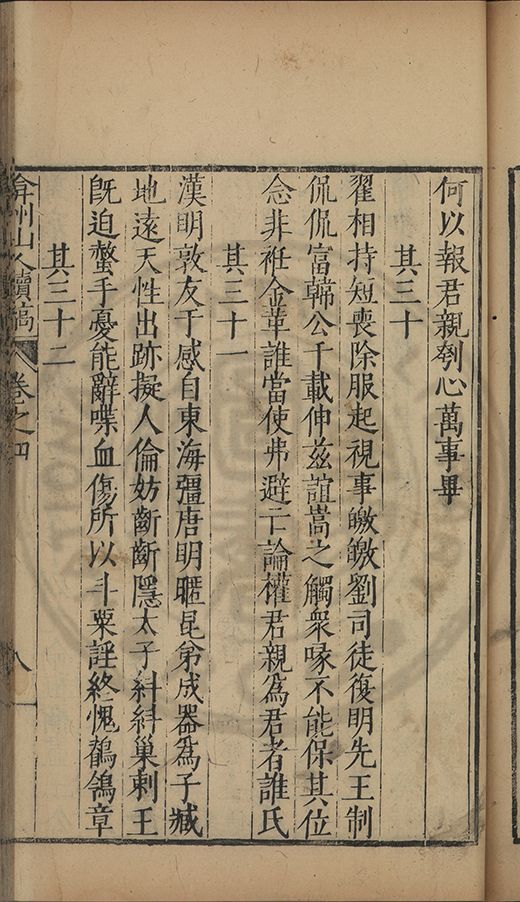 何以報君親刳心萬事畢
其三十
翟相持短喪除服起視事皦皦劉司徒復明先王制
侃侃富韓公千載伸茲誼嵩之觸衆喙不能保其位
念非衽金革誰當使弗避二論權君親為君者誰氏
其三十一
漢明敦友于感自東海彊唐明暱昆弟成器為子臧
地遠天性出跡擬人倫妨斷斷隱太子紏紏巢剌王
既迫螫手憂能辭喋血傷所以斗粟謡終愧鶺鴒章
其三十二
弇州山人續稿 卷之四 八